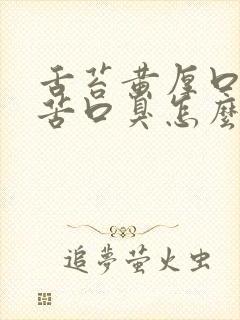 舌苔黄厚口
苦口臭怎麼
追夢萤火虫